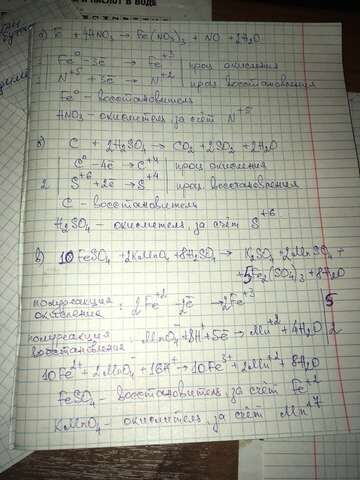 КИСЛОТ В ВОДЕ
а) Fe + 4HNO₃ → Fe(NO₃)₃ + NO + 2H₂O
1 | Fe⁰ - 3ē → Fe⁺³ | проц окисления
1 | N⁺⁵ + 3ē → N⁺² | проц восстановления
Fe⁰ - восстановитель
HNO₃ - окислитель за счёт N⁺⁵
б) C + 2H₂SO₄ → CO₂ + 2SO₂ + 2H₂O
1 | C⁰ - 4ē → C⁺⁴ | проц окисления
2 | S⁺⁶ + 2ē → S⁺⁴ | проц. восстановления
C - восстановитель
H₂SO₄ - окислитель, за счёт S⁺⁶
в) 10FeSO₄ + 2KMnO₄ + 8H₂SO₄ → K₂SO₄ + 2MnSO₄ +
+ 5Fe₂(SO₄)₃ + 8H₂O
полуреакция окисления : 2Fe⁺² - 2ē → 2Fe⁺³ | 5
полуреакция восстановления : MnO₄⁻ + 8H⁺ + 5ē → Mn⁺² + 4H₂O | 2
10Fe²⁺ + 2MnO₄⁻ + 16H⁺ → 10Fe³⁺ + 2Mn²⁺ + 8H₂O
FeSO₄ - восстановитель, за счёт Fe⁺²
KMnO₄ - окислитель, за счёт Mn⁺⁷